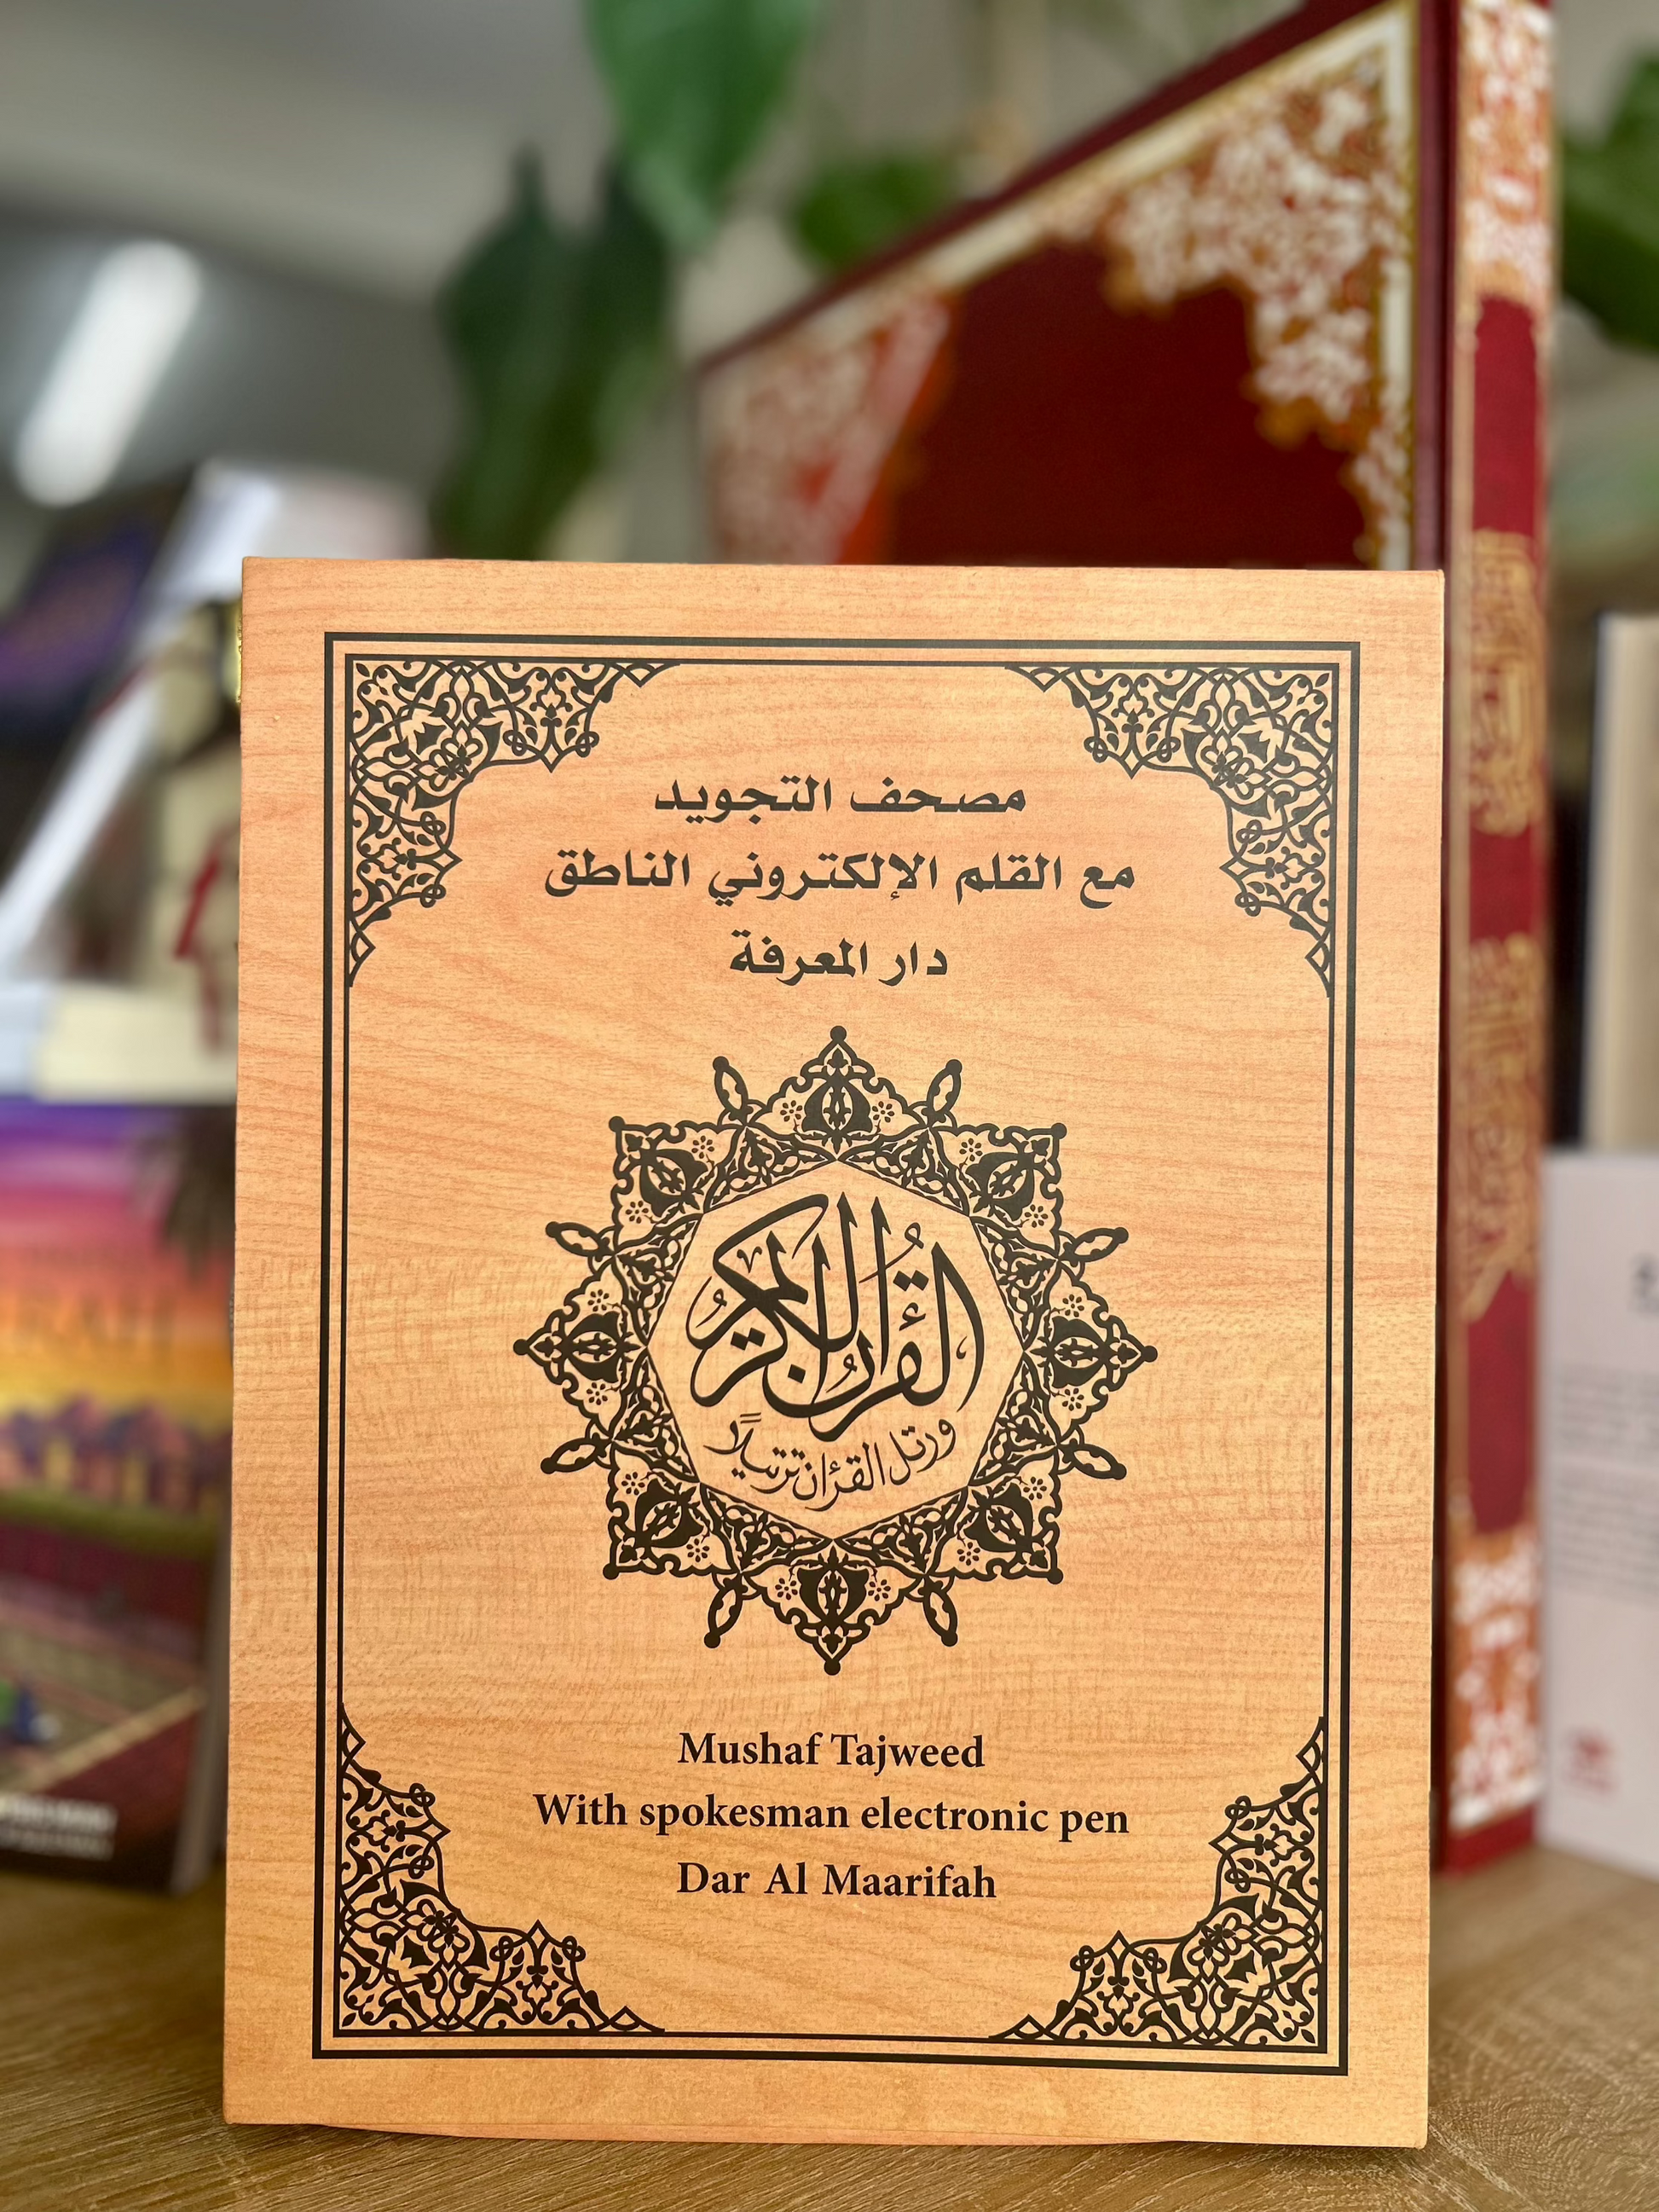 مصحف التجويد
مع القلم الإلكتروني الناطق
دار المعرفة
القرآن الكريم
ورتل القرءان ترتيلا
Mushaf Tajweed
With spokesman electronic pen
Dar Al Maarifah